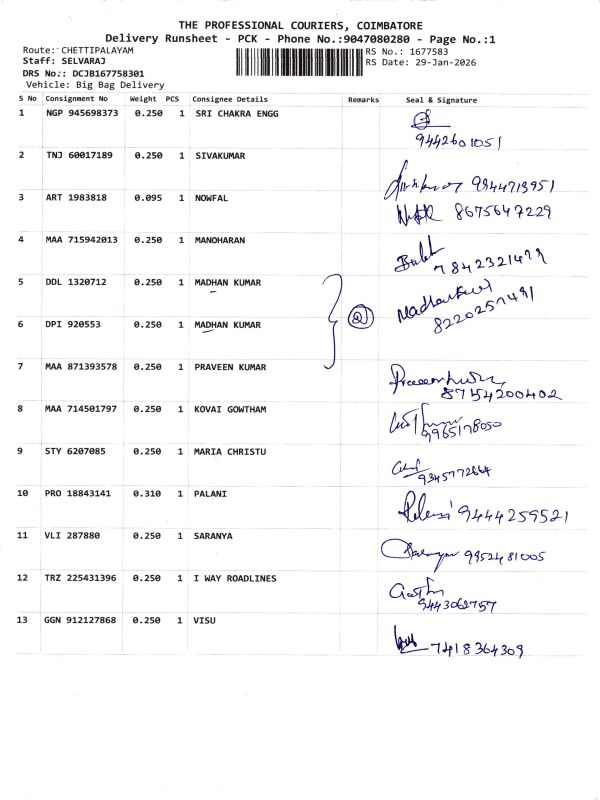 THE PROFESSIONAL COURIERS, COIMBATORE
Delivery Runsheet - PCK - Phone No.:9047080280 - Page No.:1
Route: CHETTIPALAYAM RS No.: 1677583
Staff: SELVARAJ RS Date: 29-Jan-2026
DRS No.: DCJB167758301
Vehicle: Big Bag Delivery
S No Consignment No Weight PCS Consignee Details Remarks Seal & Signature
1 NGP 945698373 0.250 1 SRI CHAKRA ENGG
9442601051
2 TNJ 60017189 0.250 1 SIVAKUMAR
9944713951
3 ART 1983818 0.095 1 NOWFAL
8675647229
4 MAA 715942013 0.250 1 MANOHARAN
7842321479
5 DDL 1320712 0.250 1 MADHAN KUMAR
8220257491
6 DPI 920553 0.250 1 MADHAN KUMAR
7 MAA 871393578 0.250 1 PRAVEEN KUMAR
8754200402
8 MAA 714501797 0.250 1 KOVAI GOWTHAM
9965178050
9 STY 6207085 0.250 1 MARIA CHRISTU
10 PRO 18843141 0.310 1 PALANI
9444259521
11 VLI 287880 0.250 1 SARANYA
9952481005
12 TRZ 225431396 0.250 1 I WAY ROADLINES
9443062757
13 GGN 912127868 0.250 1 VISU
7418364309